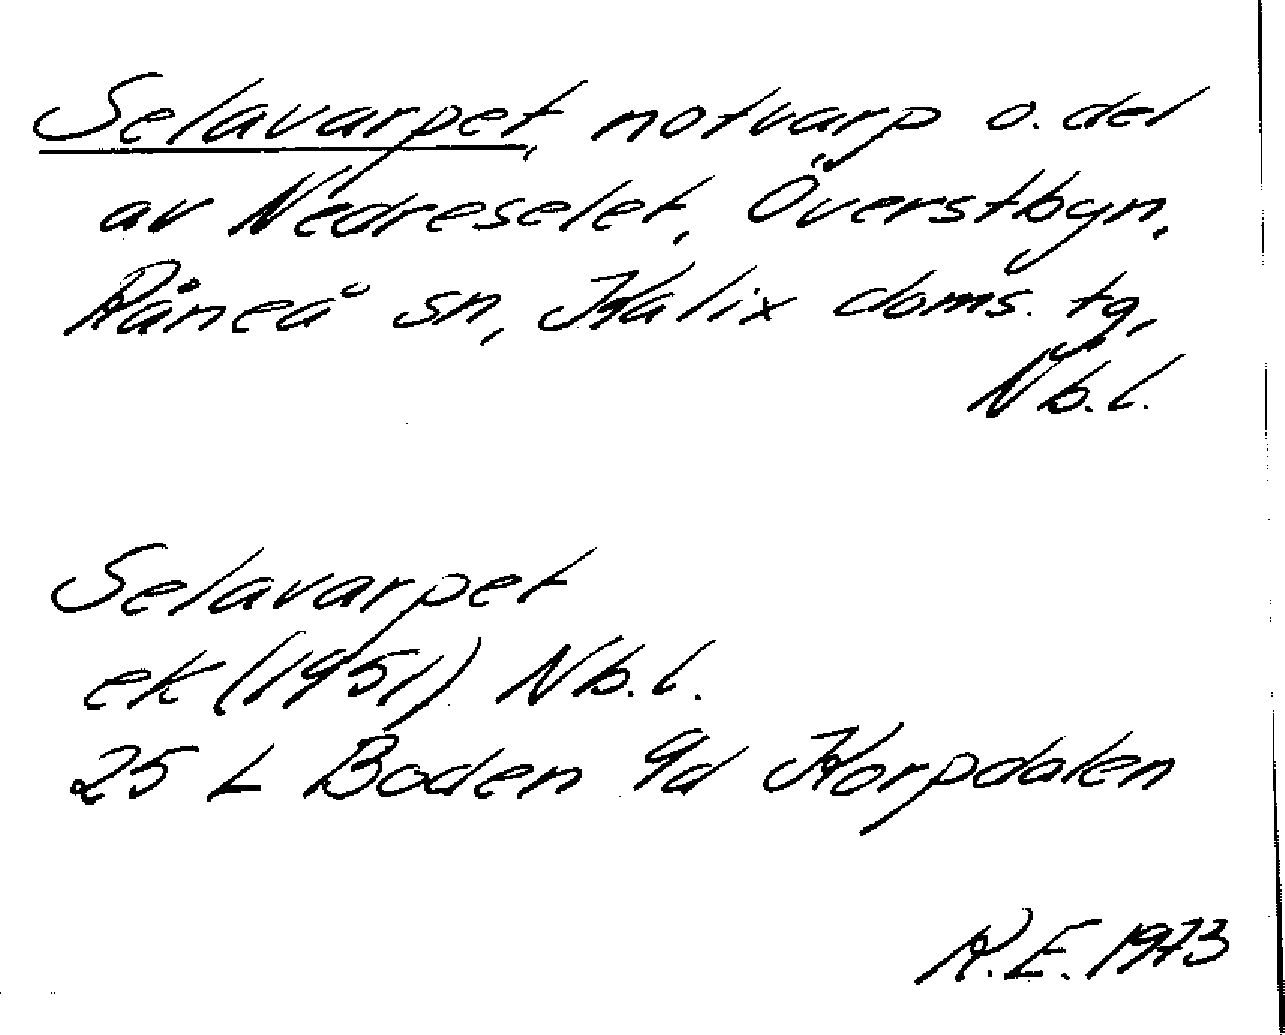 Selavarpet, notvarp o. del
av Nedreselet, Överstbyn,
Råneå sn, Kalix doms. tg,
Nb.l.
Selavarpet
ek (1951) Nb.l.
25 L Boden 9d Korpdalen
R.E. 1973